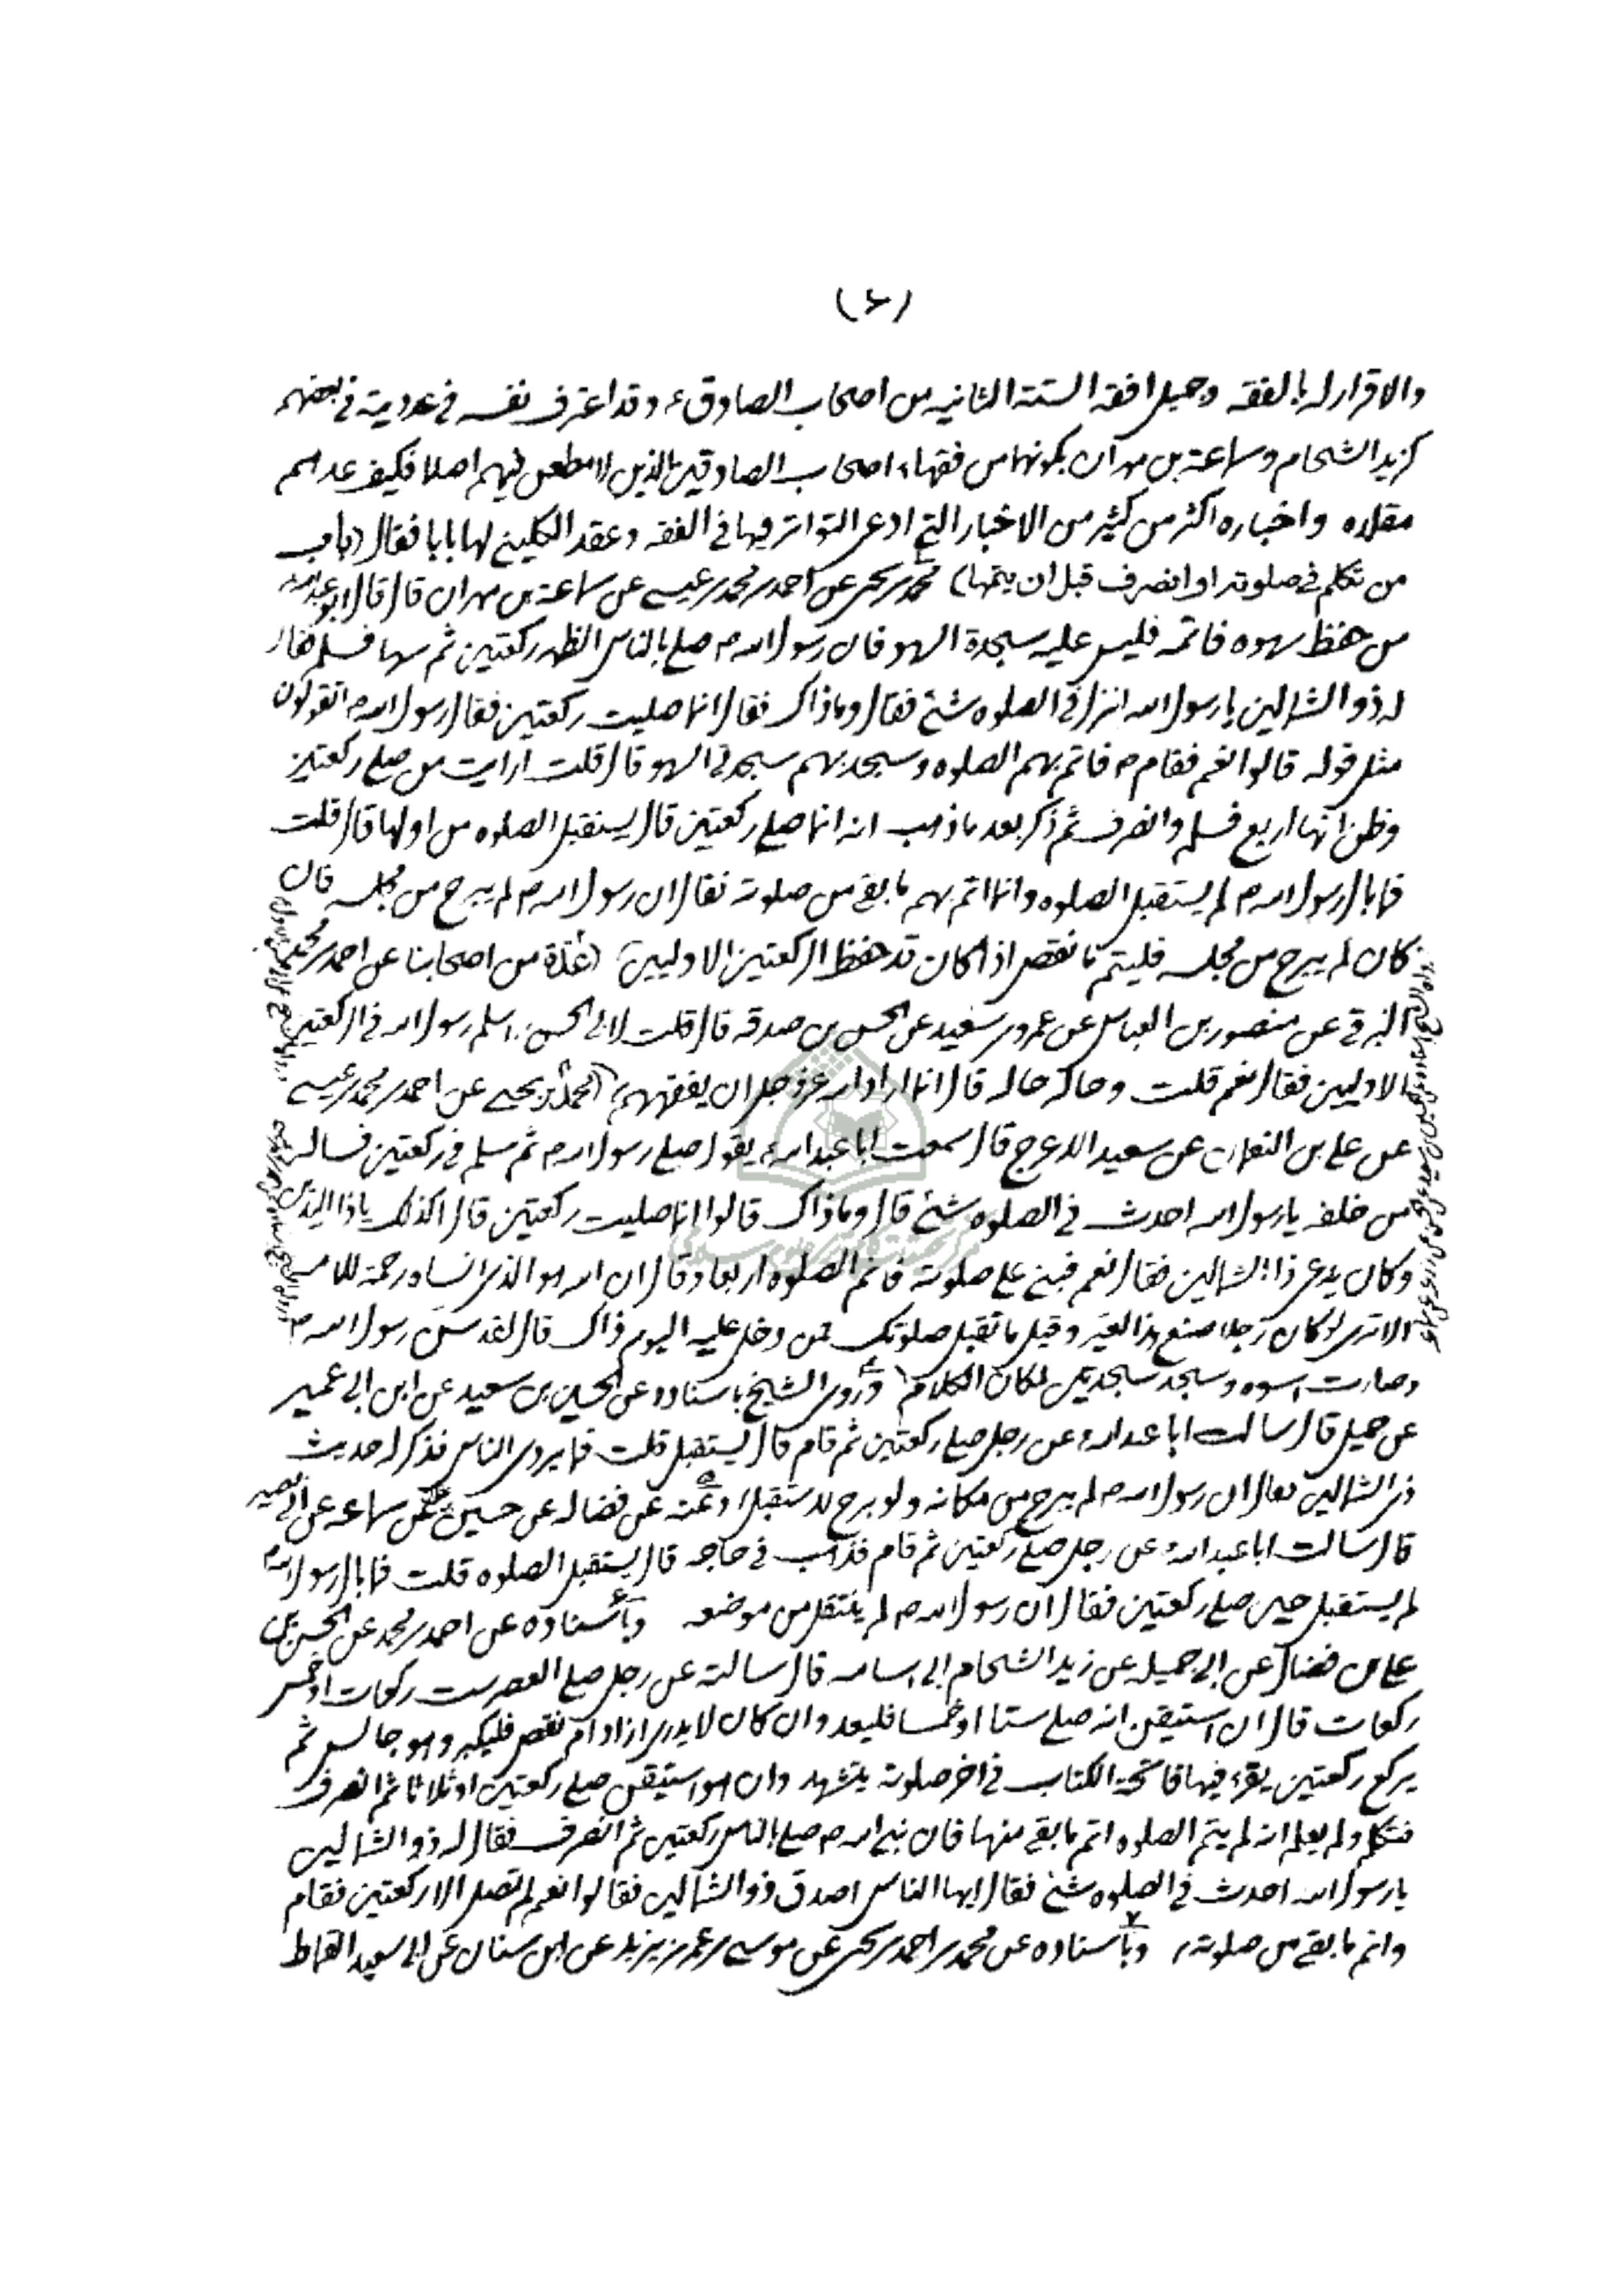 (۶)
والاقرار له بالفقه وجميل افقه الستة الثانيه من اصحاب الصادق ع وقد اعترف نفسه في عدديته في بعضهم
كزيد الشحام وسماعة بن مهران بكونهما من فقهاء اصحاب الصادقين الذين لا مطعن فيهم اصلا فكيف عداهم
مقلده واخباره اكثر من كثير من الاخبار التي ادعى التواتر فيها في الفقه وعقد الكليني لها بابا فقال (باب
من تكلم في صلوته او انصرف قبل ان يتمها) محمد بن يحيى عن احمد بن محمد بن عيسى عن سماعة بن مهران قال قال ابو عبد الله
من حفظ سهوه فاتمه فليس عليه سجدة السهو فان رسول الله ص صلى بالناس الظهر ركعتين ثم سها فسلم فقال
له ذو الشمالين يا رسول الله انزل في الصلوه شئ فقال وما ذاك فقال انما صليت ركعتين فقال رسول الله ص اتقولون
مثل قوله قالوا نعم فقام ص فاتم بهم الصلوه وسجد بهم سجدتي السهو قال قلت ارايت من صلى ركعتين
وظن انها اربع فسلم وانصرف ثم ذكر بعد ما ذهب انه انما صلى ركعتين قال يستقبل الصلوه من اولها قال قلت
فما بال رسول الله ص لم يستقبل الصلوه وانما اتم بهم ما بقي من صلوته فقال ان رسول الله ص لم يبرح من مجلسه فان
كان لم يبرح من مجلسه فليتم ما نقص اذا كان قد حفظ الركعتين الاوليين (عدة من اصحابنا عن احمد بن محمد
البرقي عن منصور بن العباس عن عمرو بن سعيد عن الحسن بن صدقه قال قلت لابي الحسن ع اسلم رسول الله في الركعتين
الاوليين فقال نعم قلت وحاله حاله قال انما اراد الله عز وجل ان يفقههم (محمد بن يحيى عن احمد بن محمد بن عيسى
عن علي بن النعمان عن سعيد الاعرج قال سمعت ابا عبد الله ع يقول صلى رسول الله ص ثم سلم في ركعتين فساله
من خلفه يا رسول الله احدث في الصلوه شئ قال وما ذاك قالوا انما صليت ركعتين قال اكذلك يا ذا اليدين
وكان يدعى ذا الشمالين فقال نعم فبنى على صلوته فاتم الصلوه اربعا وقال ان الله هو الذي انساه رحمة للامه
الا ترى لو كان رجلا صنع هذا لعير وقيل ما تقبل صلوتك فمن دخل عليه اليوم ذاك قال لقد سن رسول الله ص
وصارت اسوه وسجد سجدتين لمكان الكلام) وروى الشيخ باسناده عن الحسين بن سعيد عن ابن ابي عمير
عن جميل قال سالت ابا عبد الله ع عن رجل صلى ركعتين ثم قام قال يستقبل قلت فما يروي الناس فذكر له حديث
ذي الشمالين فقال ان رسول الله ص لم يبرح من مكانه ولو برح لاستقبل) وعنه عن فضاله عن حسين عن سماعه عن ابي بصير
قال سالت ابا عبد الله ع عن رجل صلى ركعتين ثم قام فذهب في حاجه قال يستقبل الصلوه قلت فما بال رسول الله ص
لم يستقبل حين صلى ركعتين فقال ان رسول الله ص لم ينتقل من موضعه وباسناده عن احمد بن محمد عن الحسن بن
علي بن فضال عن ابي جميله عن زيد الشحام ابي اسامه قال سالته عن رجل صلى العصر ست ركعات او خمس
ركعات قال ان استيقن انه صلى ستا او خمسا فليعد وان كان لا يدري ازاد ام نقص فليكبر وهو جالس ثم
يركع ركعتين يقرء فيهما فاتحة الكتاب في اخر صلوته يتشهد وان هو استيقن صلى ركعتين او ثلاثا ثم انصرف
فتكلم ولم يعلم انه لم يتم الصلوه اتم ما بقي منها فان نبي الله ص صلى بالناس ركعتين ثم انصرف فقال له ذو الشمالين
يا رسول الله احدث في الصلوه شئ فقال ايها الناس اصدق ذو الشمالين فقالوا نعم لم تصل الا ركعتين فقام
واتم ما بقي من صلوته) وباسناده عن محمد بن احمد بن يحيى عن موسى بن عمر بن يزيد عن ابن سنان عن ابي سعيد القماط